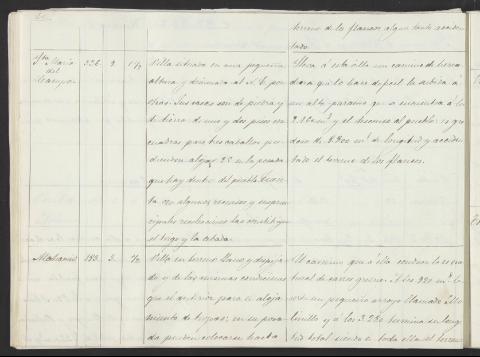 terreno de los flancos algun tanto acciden
tado.
Sta. Maria del Campo
336. 9. 1½
Villa situada en una pequeña
altura y dominada al S. E. por
otras. Sus casas son de piedra y
de tierra de uno y dos pisos en
cuadras para tres caballos pu
diendose alojar 25 en la posada
que hay dentro del pueblo. Cuen
ta con algunos recursos y sus prin
cipales recolecciones las constituyen
el trigo y la cebada.
Lleva á esta villa un camino de herra
dura que lo hace de facil la subida á
un alto paramo que se encuentra á los
2.250 m³ y el descenso al pueblo: es
de 8.800 m³ de longitud y acciden
tado el terreno de los flancos.
Mahamud
183. 5. ½
Villa en terreno llano y despeja
do y de las mismas condiciones
que el anterior para el aloja
miento de tropas; en su posa
da pueden colocarse hasta
El camino que á ella conduce es carre
natural de carros A los 980 m³
un pequeño arroyo llamado
y á los 3.280 termina su longi
tud total siendo en toda ella el terreno